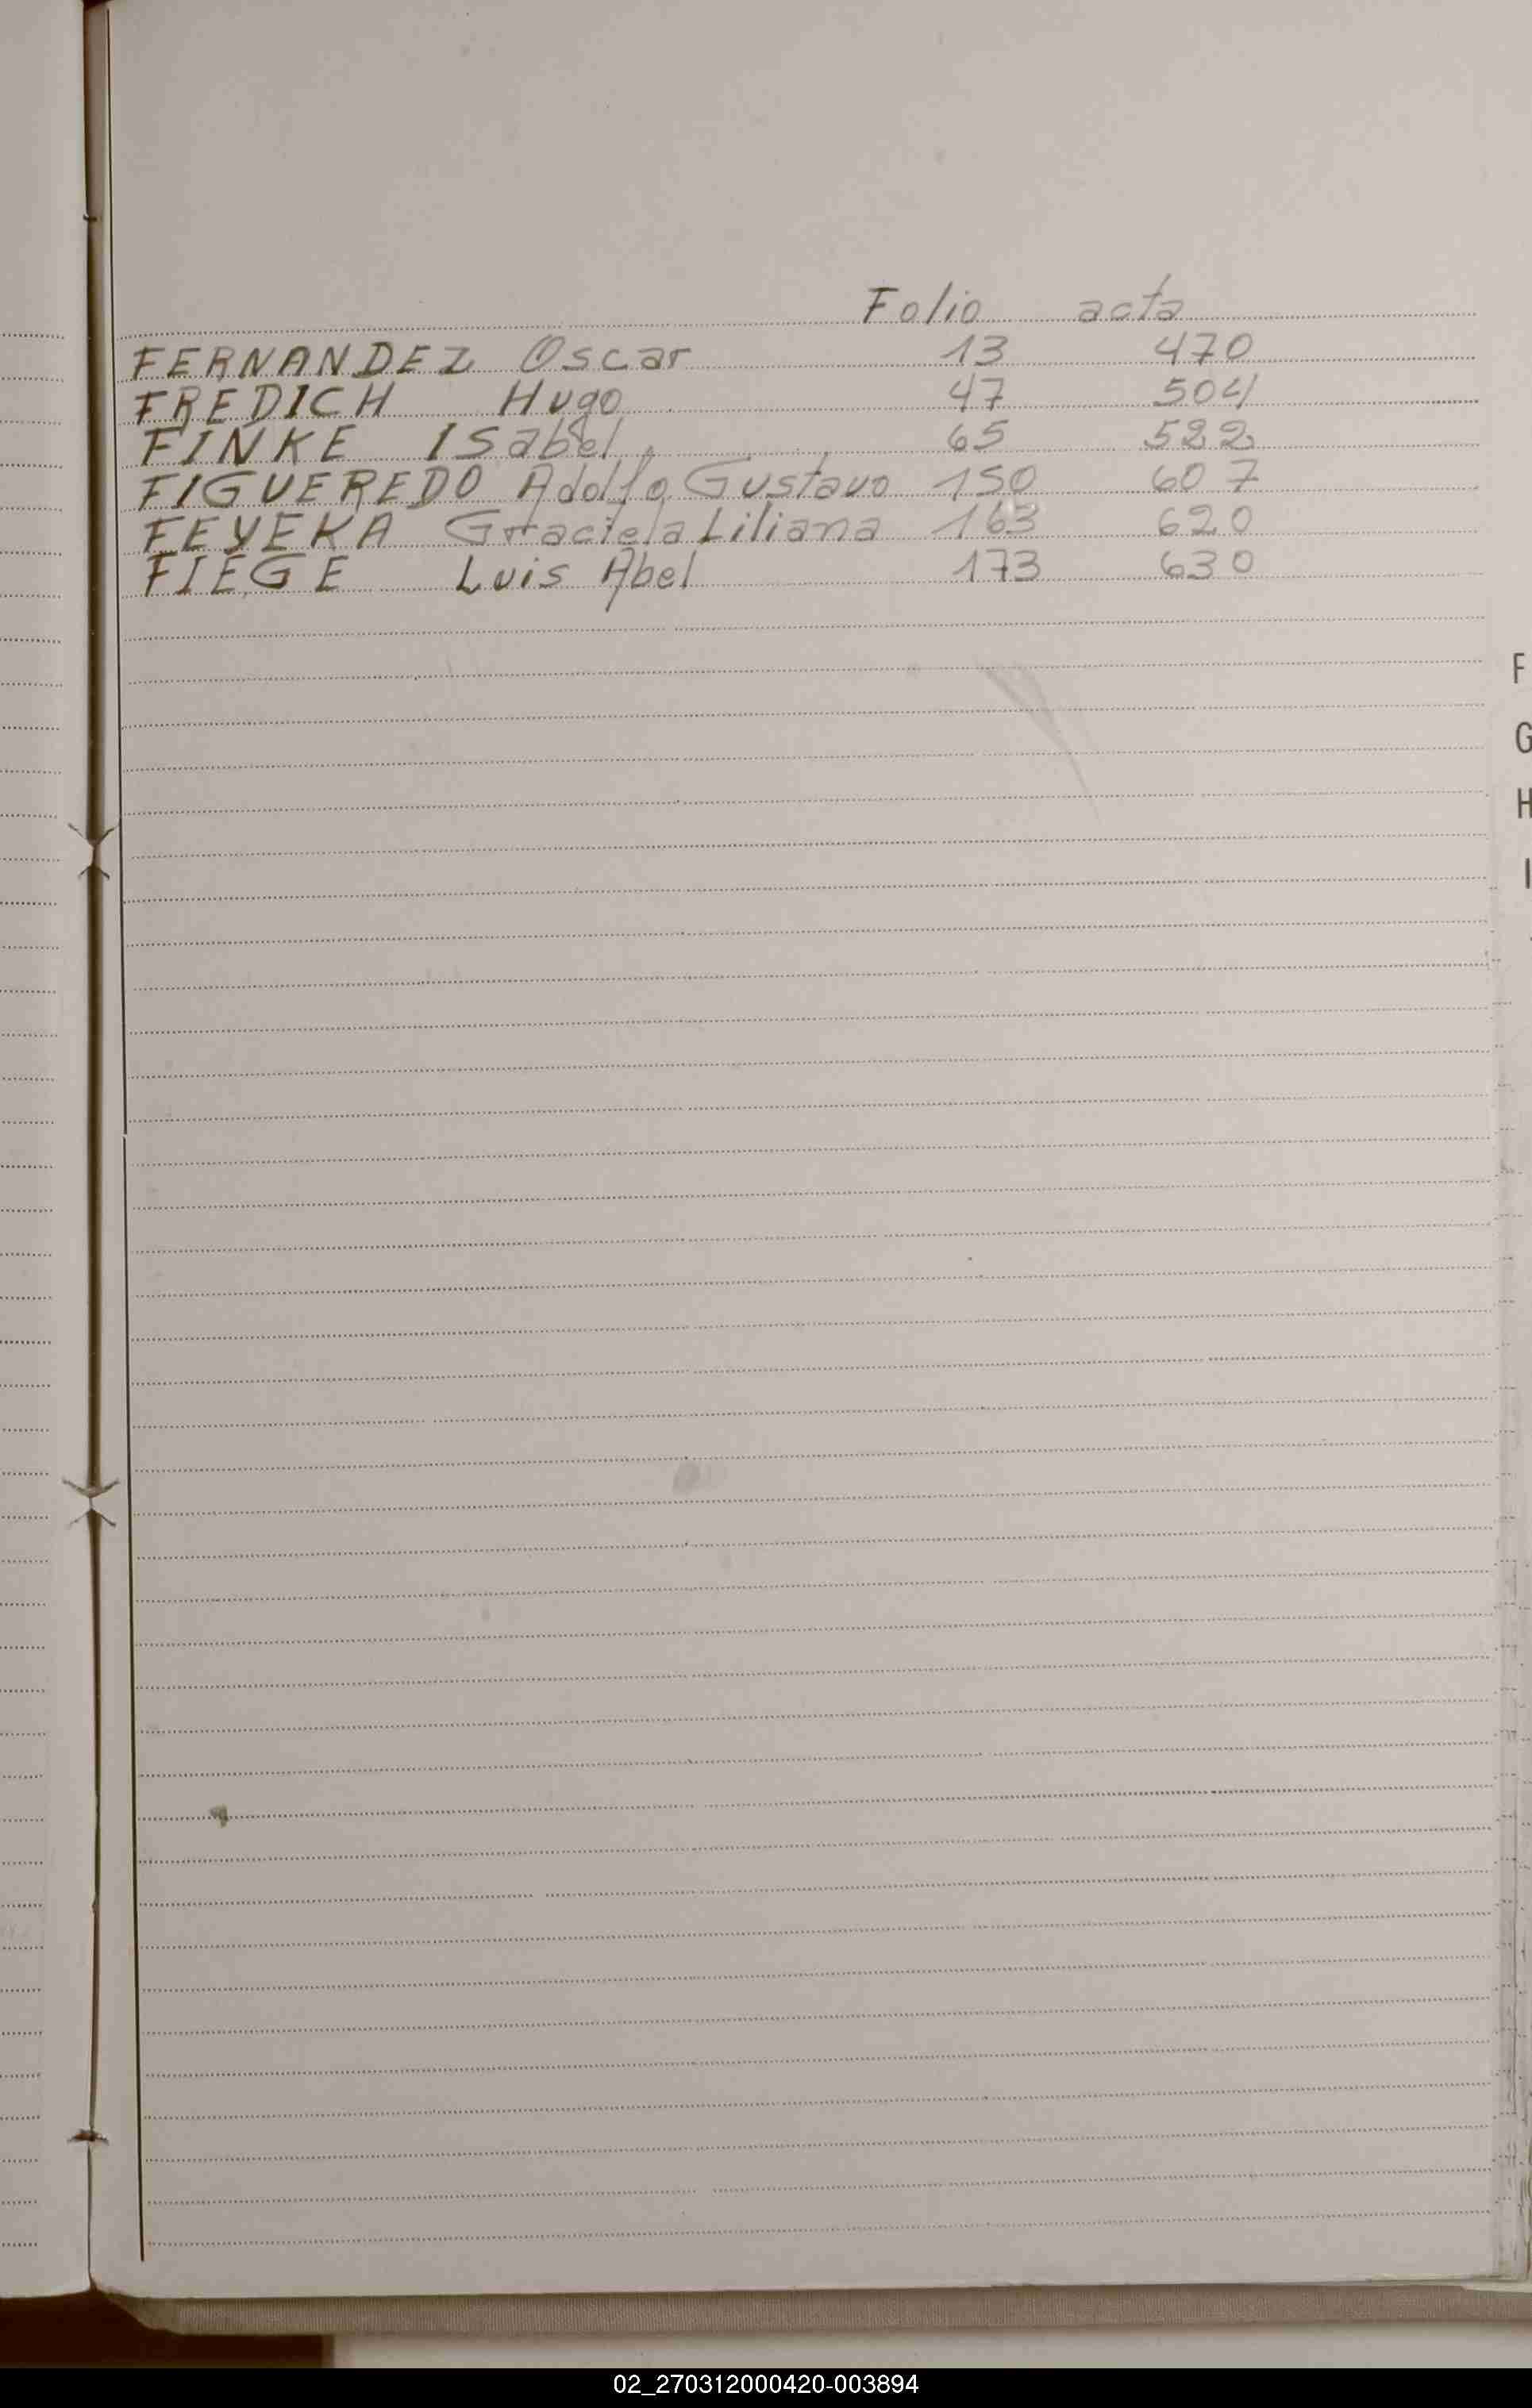 Folio acta
FERNANDEZ Oscar 13 470
FREDICH Hugo 47 504
FINKE ISabel 65 522
FIGUEREDO Adolfo Gustavo 150 607
FEYEKA Graciela Liliana 163 620
FIEGE Luis Abel 173 630
F
G
H
I
02_270312000420-003894